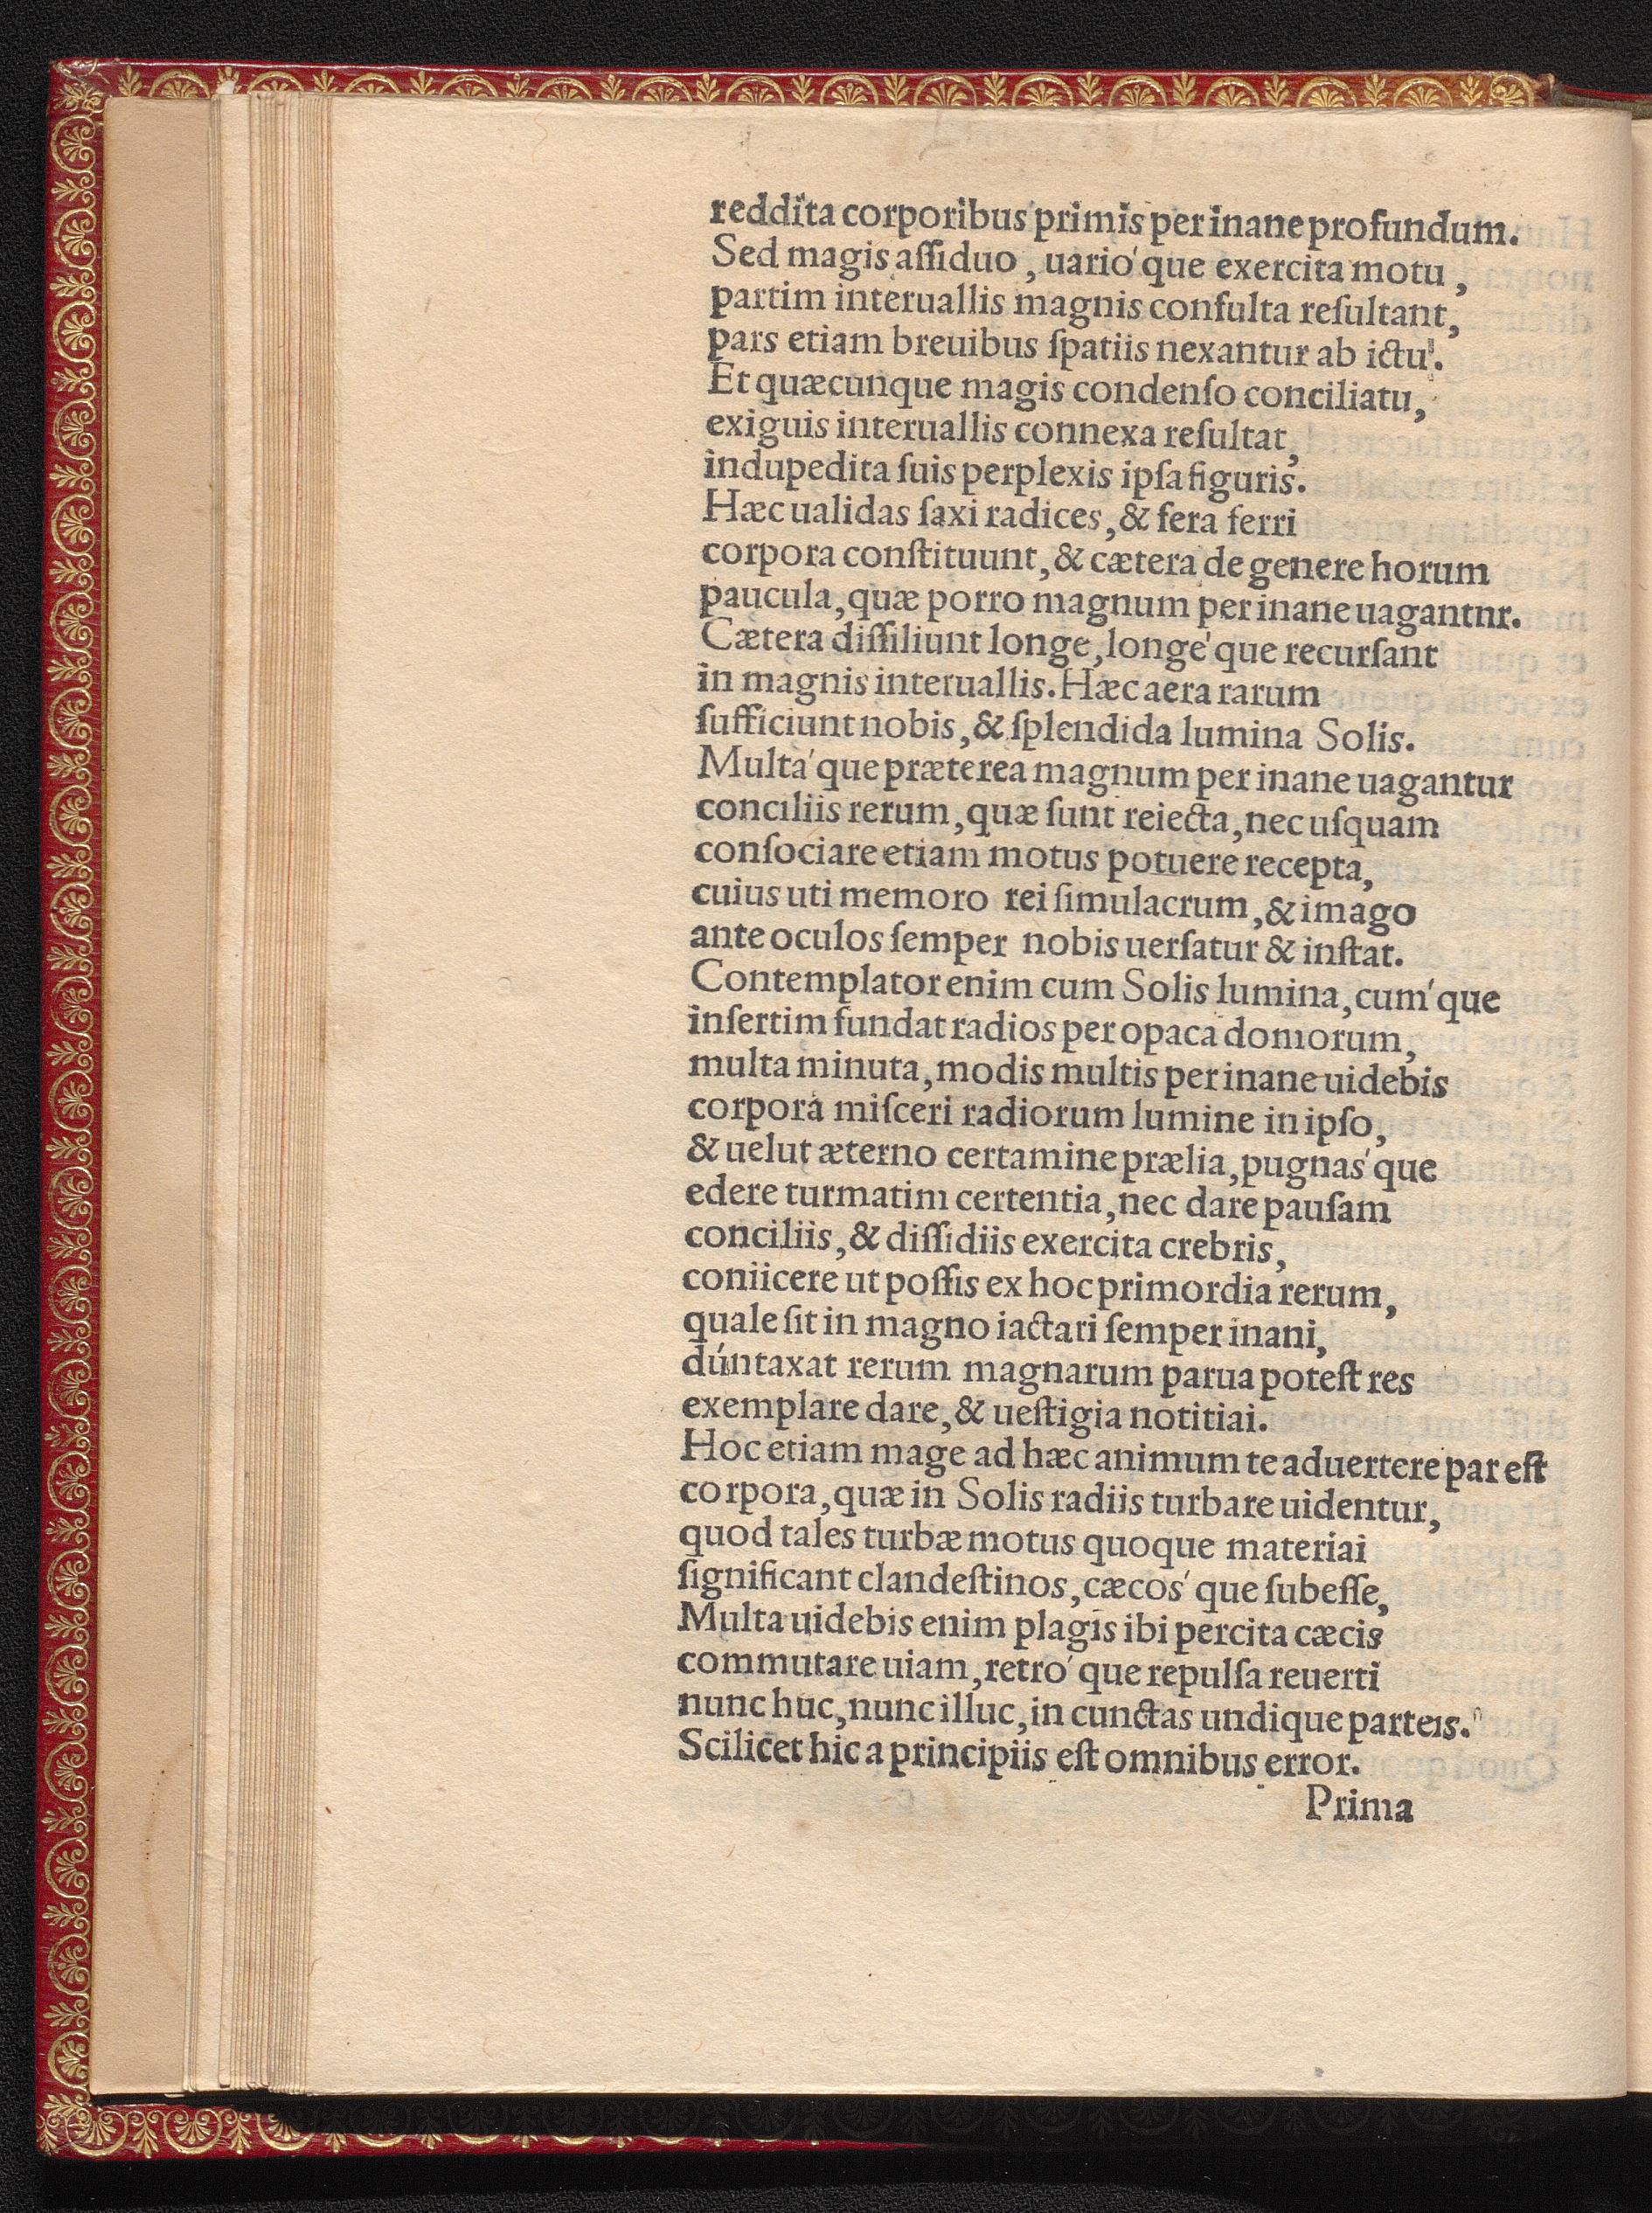 reddita corporibus primis per inane profundum.
Sed magis aſſiduo, uario´que exercita motu,
partim interuallis magnis confulta reſultant,
pars etiam breuibus ſpatiis nexantur ab ictu.
Et quæcunque magis condenſo conciliatu,
exiguis interuallis connexa reſultat,
indupedita ſuis perplexis ipſa figuris.
Hæc ualidas ſaxi radices, & fera ferri
corpora conſtituunt, & cætera de genere horum
paucula, quæ porro magnum per inane uagantnr.
Cætera diſſiliunt longe, longe´que recurſant
in magnis interuallis. Hæc aera rarum
ſufficiunt nobis, & ſplendida lumina Solis.
Multa´que præterea magnum per inane uagantur
conciliis rerum, quæ ſunt reiecta, nec uſquam
conſociare etiam motus potuere recepta,
cuius uti memoro rei ſimulacrum, & imago
ante oculos ſemper nobis uerſatur & inſtat.
Contemplator enim cum Solis lumina, cum´que
inſertim fundat radios per opaca domorum,
multa minuta, modis multis per inane uidebis
corpora miſceri radiorum lumine in ipſo,
& uelut æterno certamine prælia, pugnas´que
edere turmatim certentia, nec dare pauſam
conciliis, & diſſidiis exercita crebris,
coniicere ut poſſis ex hoc primordia rerum,
quale ſit in magno iactari ſemper inani,
dúntaxat rerum magnarum parua poteſt res
exemplare dare, & ueſtigia notitiai.
Hoc etiam mage ad hæc animum te aduertere par eſt
corpora, quæ in Solis radiis turbare uidentur,
quod tales turbæ motus quoque materiai
ſignificant clandeſtinos, cæcos´que ſubeſſe,
Multa uidebis enim plagis ibi percita cæcis
commutare uiam, retro´que repulſa reuerti
nunc huc, nunc illuc, in cunctas undique parteis.
Scilicet hic a principiis eſt omnibus error.
Prima